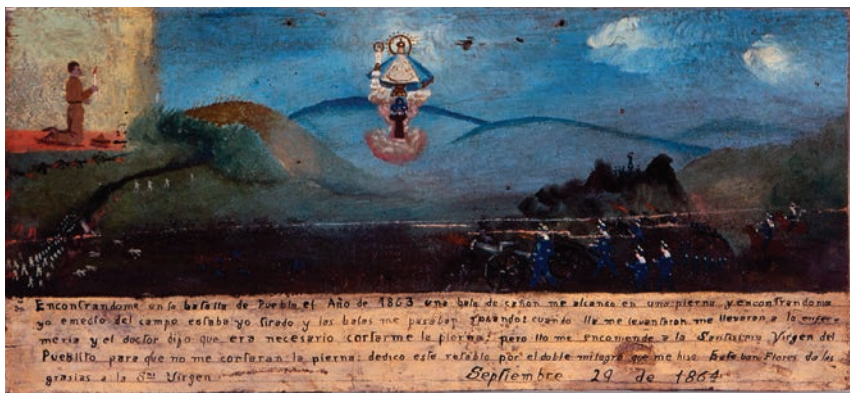 Encontrandome en la batalla de Puebla el Año de 1863 una bala de cañon me alcanso en una pierna y encontrandome
yo emedio del campo estaba yo tirado y las balas me pasaban rosandot cuanto lla me levantaron me llevaron a la enfer-
meria y el doctor dijo que era necesario cortarme la pierna; pero llo me encomende a la Santisima Virgen del
Pueblito para que no me cortaran la pierna: dedico este retablo por el doble milagro que me hiso Esteban Flores da las
grasias a la Sma Virgen Septiembre 29 de 1864